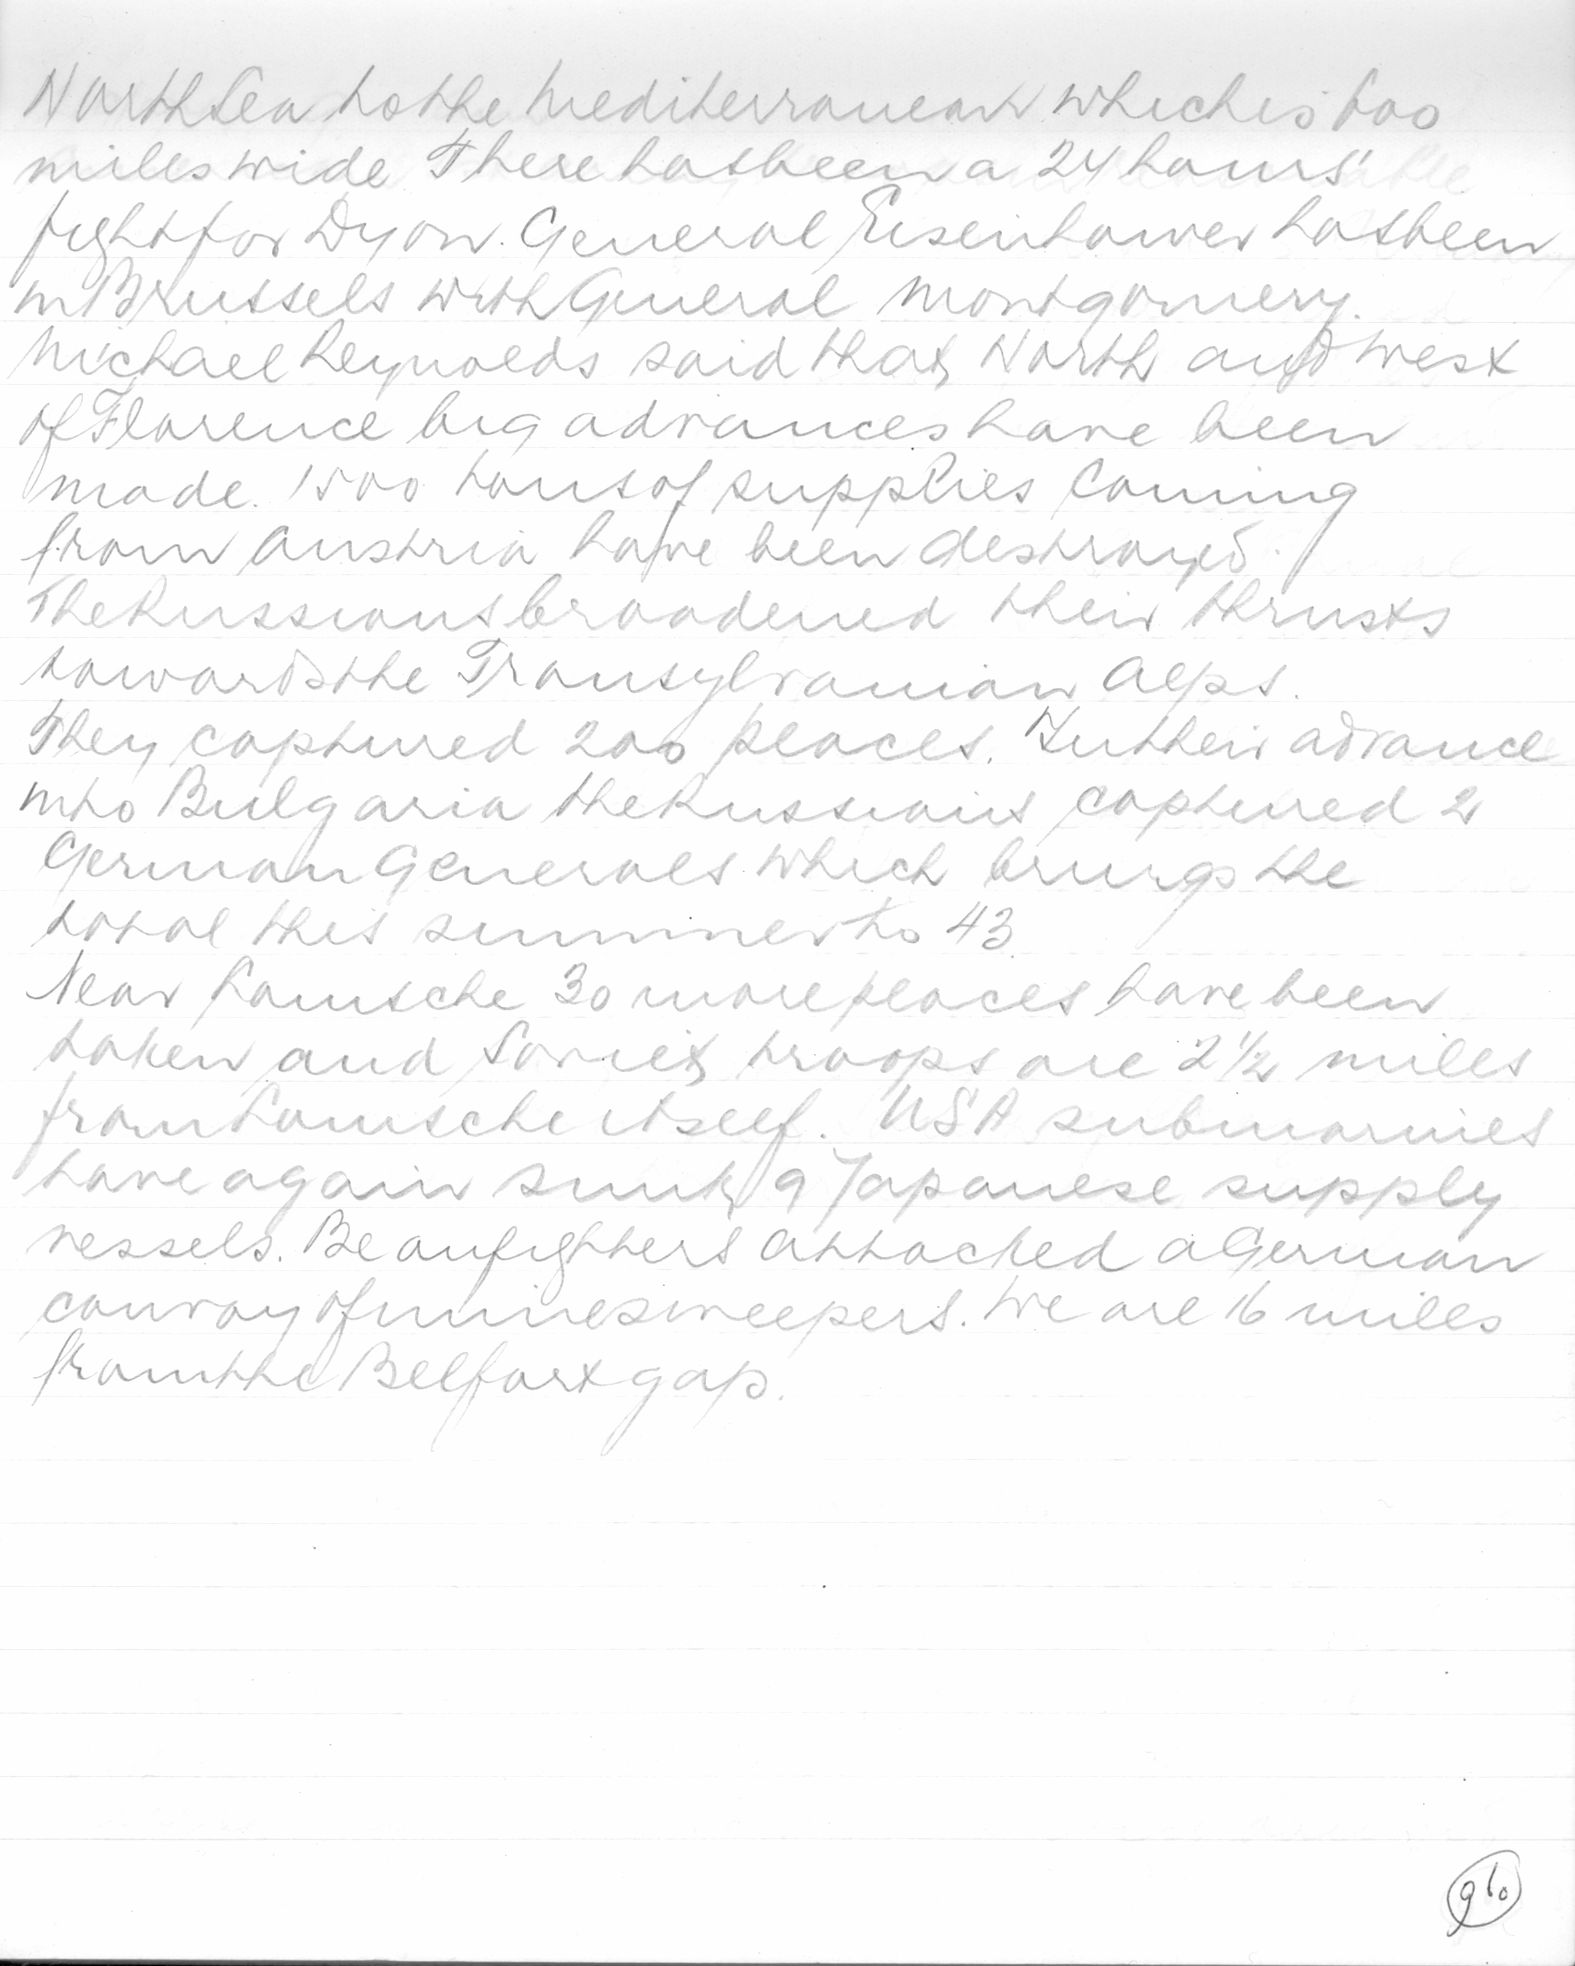 North Sea to the Mediterranean which is 600
miles wide. There has been a 24 hours'
fight for Dyon. General Eisenhower has been
in Brussels with General Montgomery.
Michael Reynolds said that North and West
of Florence big advances have been
made. 1500 tons of supplies coming
from Austria have been destroyed.
The Russians broadened their thrusts
towards the Transylvanian Alps.
They captured 200 places. In their advance
into Bulgaria the Russians captured 2
German Generals which brings the
total this summer to 43
Near Lomsche 30 more places have been
taken and Soviet troops are 2 1/2 miles
from Lomsche itself. USA submarines
have again sunk 9 Japanese supply
vessels. Beaufighters attacked a German
convoy of minesweepers. We are 16 miles
from the Belfort gap.